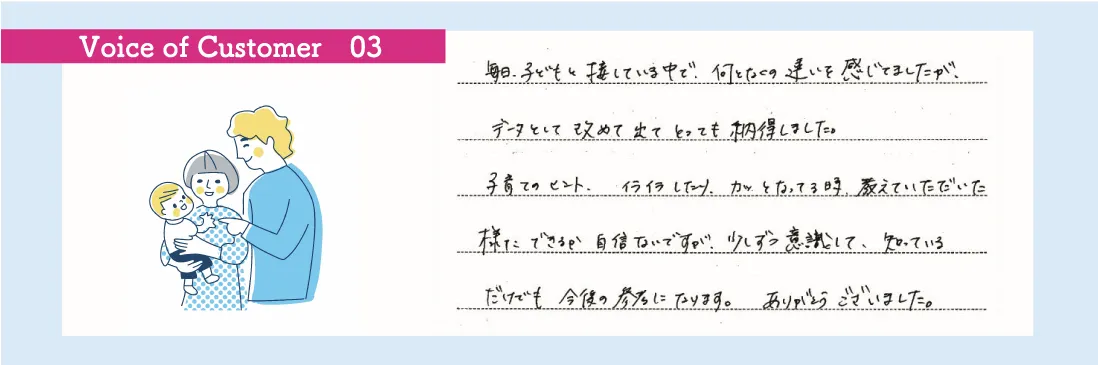 Voice of Customer 03
毎日、子どもと接している中で、何となくの違いを感じてましたが、
データとして改めて出てとっても納得しました。
子育てのヒント、イライラしたり、カッとなってる時、教えていただいた
様にできるか自信ないですが、少しずつ意識して、知っている
だけでも今後の参考になります。ありがとうございました。